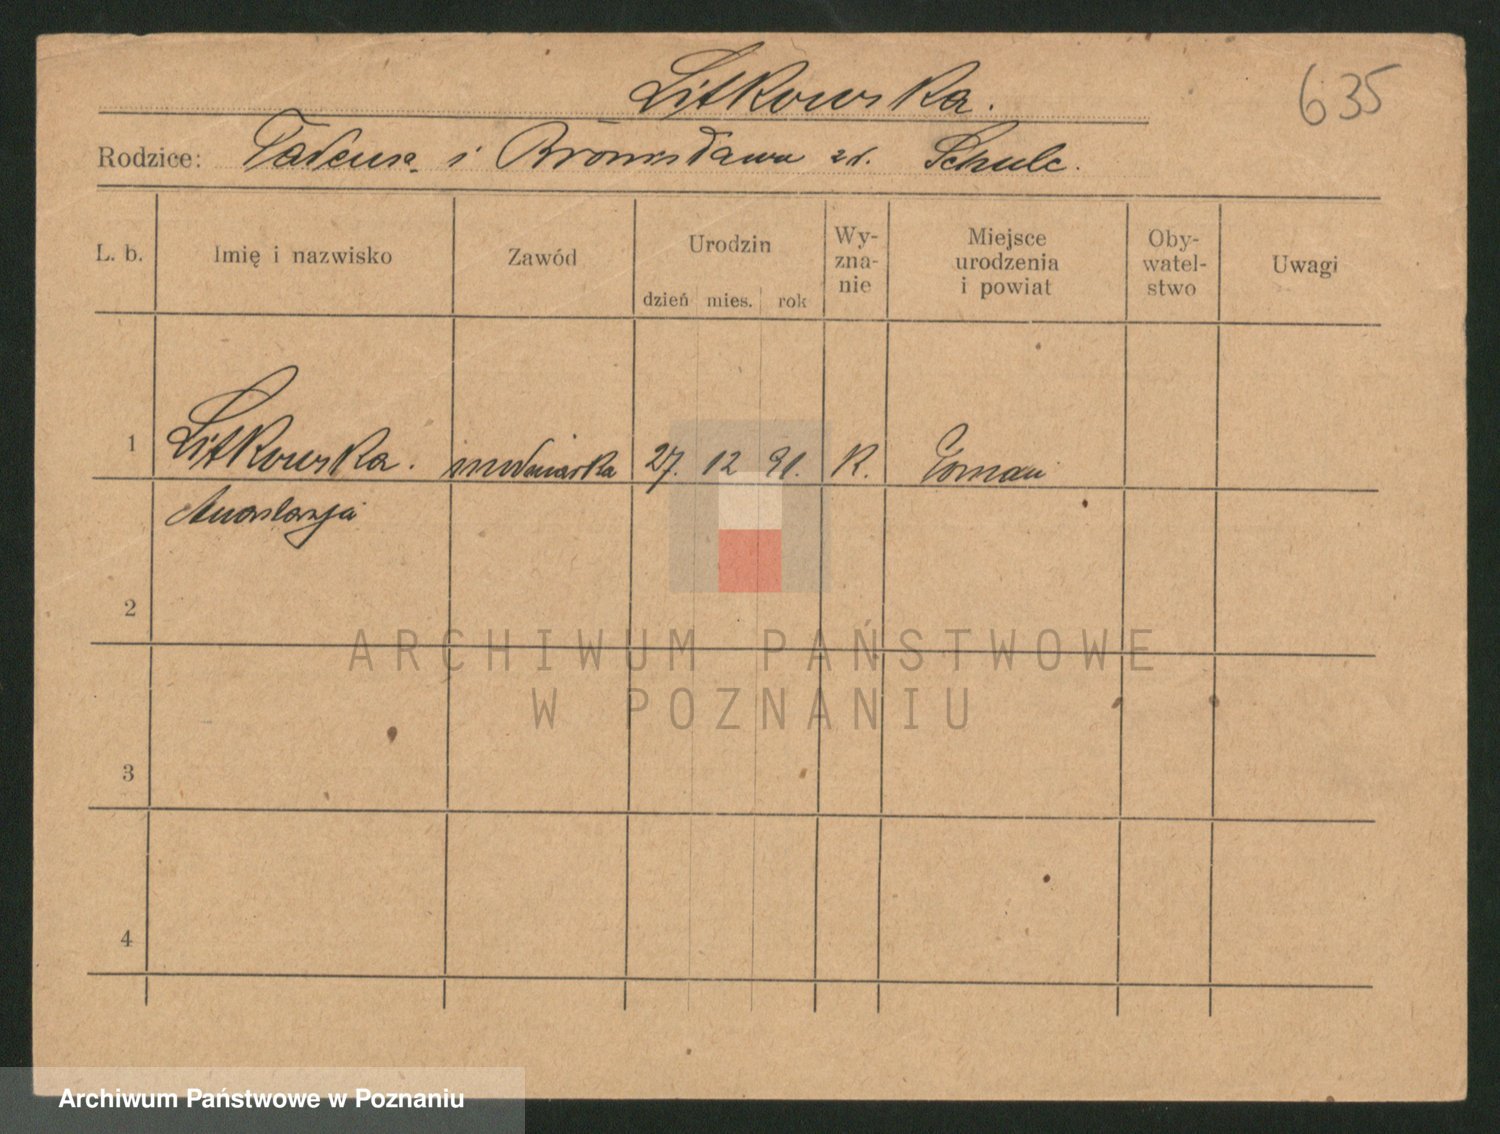 Litkowska.
635
Rodzice: Tadeusz i Bronisława zd. Schulc.
L. b. Imię i nazwisko Zawód Urodzin dzień mies. rok Wy-zna-nie Miejsce urodzenia i powiat Oby-watel-stwo Uwagi
1 Litkowska. modniarka 27. 12 91. R.
Anastazja
2
ARCHIWUM PAŃSTWOWE
W POZNANIU
3
4
Archiwum Państwowe w Poznaniu